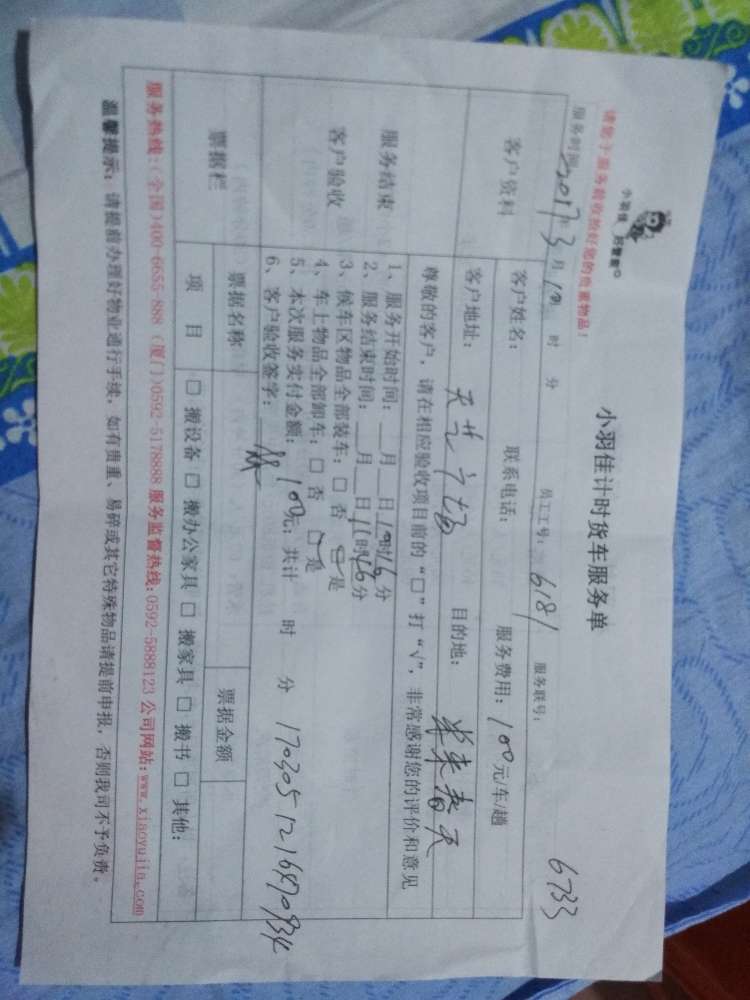 小羽佳
小羽佳计时货车服务单
6733
请您于服务前收拾好您的贵重物品!
服务时间: 2017年3月19日 时 分 员工工号: 6181 服务联号:
客户资料
客户姓名: 联系电话: 服务费用: 100元/车/趟
客户地址: 目的地: 春天
尊敬的客户, 请在相应验收项目前的“□”打“√”, 非常感谢您的评价和意见
服务结束
客户验收
1、服务开始时间: __月__日10时16分
2、服务结束时间: __月__日11时16分
3、候车区物品全部装车: □ 否 □是
4、车上物品全部卸车: □ 否 □是
5、本次服务实付金额: 100元; 共计 时 分 1703051216870934
6、客户验收签字:
票据栏
票据名称
票据金额
项 目
□ 搬设备 □ 搬办公家具 □ 搬家具 □ 搬书 □ 其他:
服务热线:(全国)400-6655-888 (厦门)0592-5178888 服务监督热线:0592-5888123 公司网站:www.xiaoyujia.com
温馨提示: 请提前办理好物业通行手续, 如有贵重、易碎或其它特殊物品请提前申报, 否则我司不予负责。